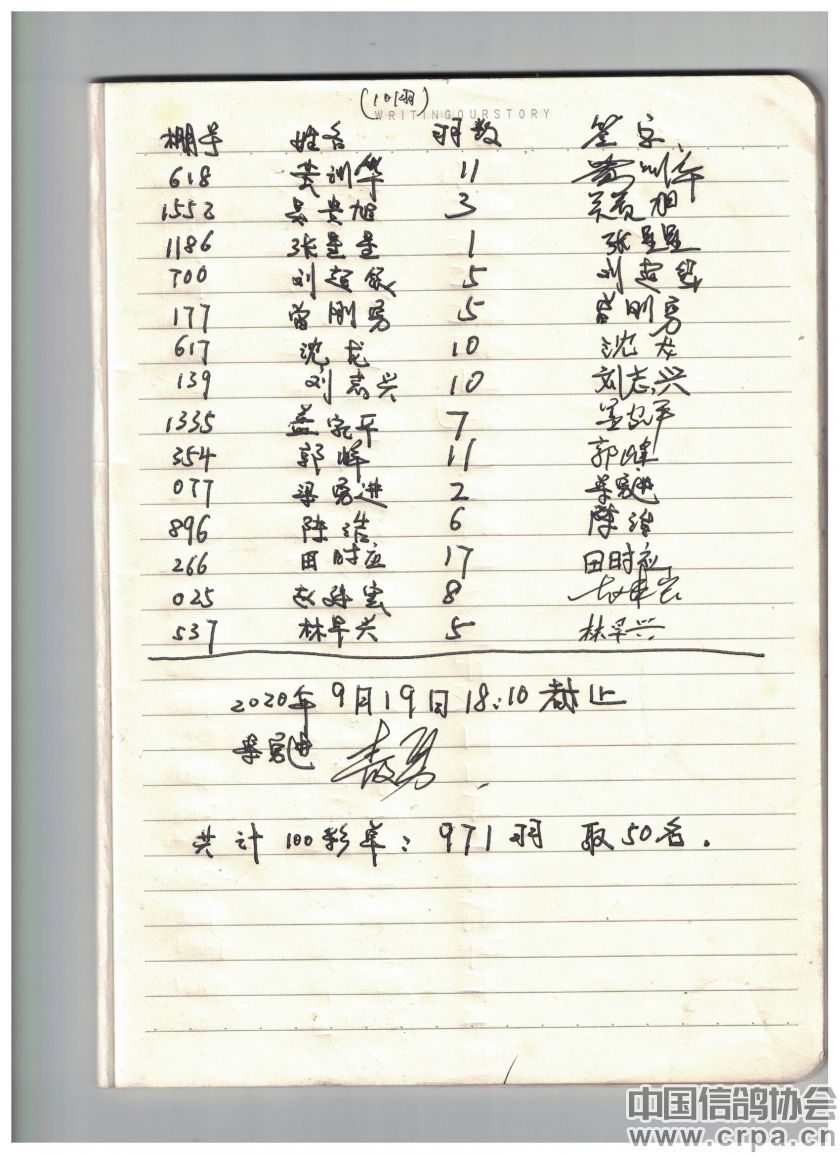 (101羽)
WRITINGOURSTORY
棚号 姓名 羽数 签字
618 黄训华 11 黄训华
1552 吴贵旭 3 吴贵旭
1186 张星星 1 张星星
700 刘超银 5 刘超银
177 曾刚勇 5 曾刚勇
617 沈龙 10 沈龙
139 刘志兴 10 刘志兴
1335 孟家平 7 孟家平
354 郭峰 11 郭峰
077 梁勇进 2 梁勇进
896 陈浩 6 陈浩
266 田时应 17 田时应
025 赵 8
537 林早兴 5 林早兴
2020年9月19日18:10截止
梁勇进
共计100彩单: 971羽 取50名.
中国信鸽协会
www.crpa.cn